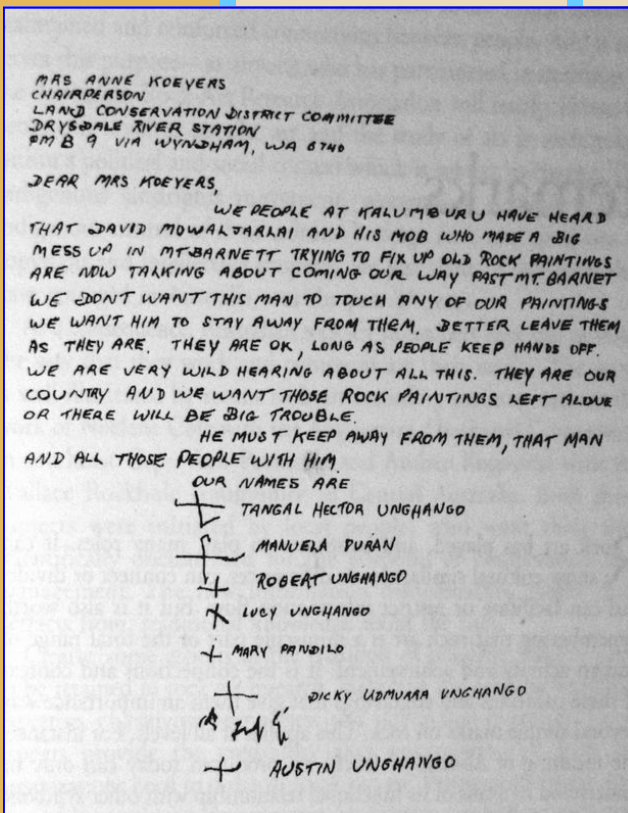 MRS ANNE KOEYERS
CHAIRPERSON
LAND CONSERVATION DISTRICT COMMITTEE
DRYSDALE RIVER STATION
PMB 9 VIA WYNDHAM, WA 6740
DEAR MRS KOEYERS,
WE PEOPLE AT KALUMBURU HAVE HEARD
THAT DAVID MOWALJARLAI AND HIS MOB WHO MADE A BIG
MESS UP IN MT BARNETT TRYING TO FIX UP OLD ROCK PAINTINGS
ARE NOW TALKING ABOUT COMING OUR WAY PAST MT. BARNET
WE DONT WANT THIS MAN TO TOUCH ANY OF OUR PAINTINGS
WE WANT HIM TO STAY AWAY FROM THEM. BETTER LEAVE THEM
AS THEY ARE. THEY ARE OK, LONG AS PEOPLE KEEP HANDS OFF.
WE ARE VERY WILD HEARING ABOUT ALL THIS. THEY ARE OUR
COUNTRY AND WE WANT THOSE ROCK PAINTINGS LEFT ALONE
OR THERE WILL BE BIG TROUBLE.
HE MUST KEEP AWAY FROM THEM, THAT MAN
AND ALL THOSE PEOPLE WITH HIM.
OUR NAMES ARE
TANGAL HECTOR UNGHANGO
MANUELA PURAN
ROBERT UNGHANGO
LUCY UNGHANGO
MARY PANDILO
DICKY UDMUARA UNGHANGO
AUSTIN UNGHANGO